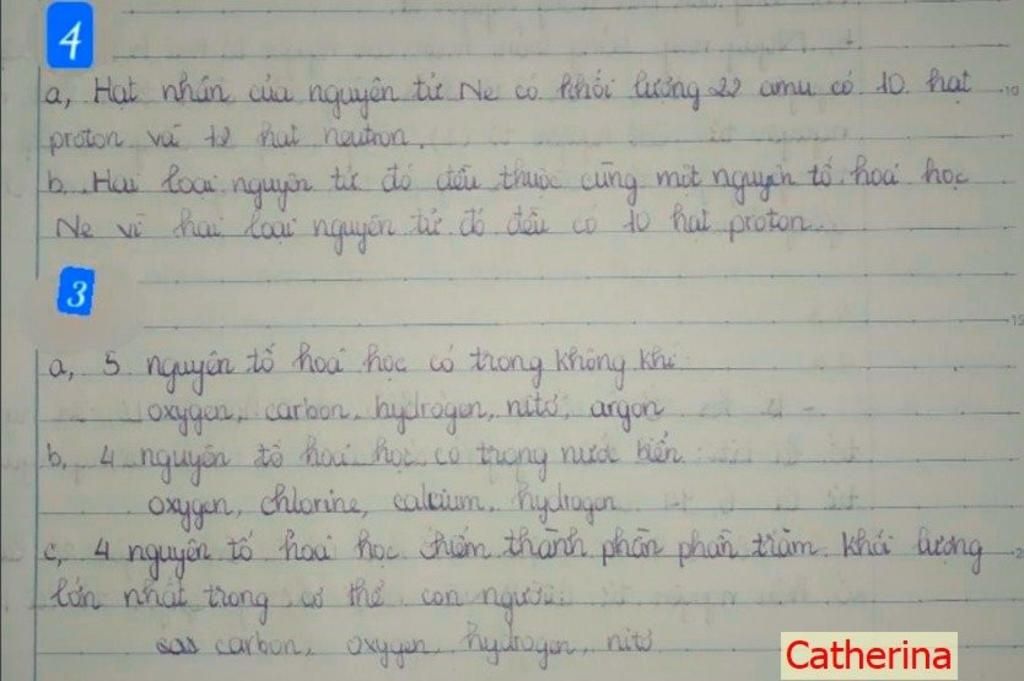 4
a, Hạt nhân của nguyên tử Ne có khối lượng 22 amu có 10 hạt
proton và 12 hạt neutron.
b. Hai loại nguyên tử đó đều thuộc cùng một nguyên tố hoá học
Ne vì hai loại nguyên tử đó đều có 10 hạt proton.
3
a, 5 nguyên tố hoá học có trong không khí
oxygen, carbon, hydrogen, nitơ, argon
b, 4 nguyên tố hoá học có trong nước biển.
oxygen, chlorine, calcium, hydrogen
c, 4 nguyên tố hoá học chiếm thành phần phần trăm khối lượng
lớn nhất trong cơ thể con người:
carbon, oxygen, hydrogen, nitơ
Catherina